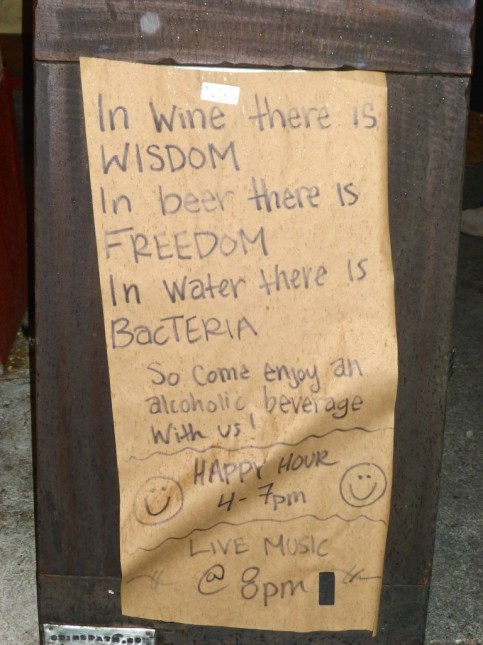 In Wine there is
WISDOM
In beer there is
FREEDOM
In Water there is
BacTERIA
So Come enjoy an
alcoholic beverage
With us!
HAPPY HOUR
4-7pm
LIVE MUSIC
@ 8pm